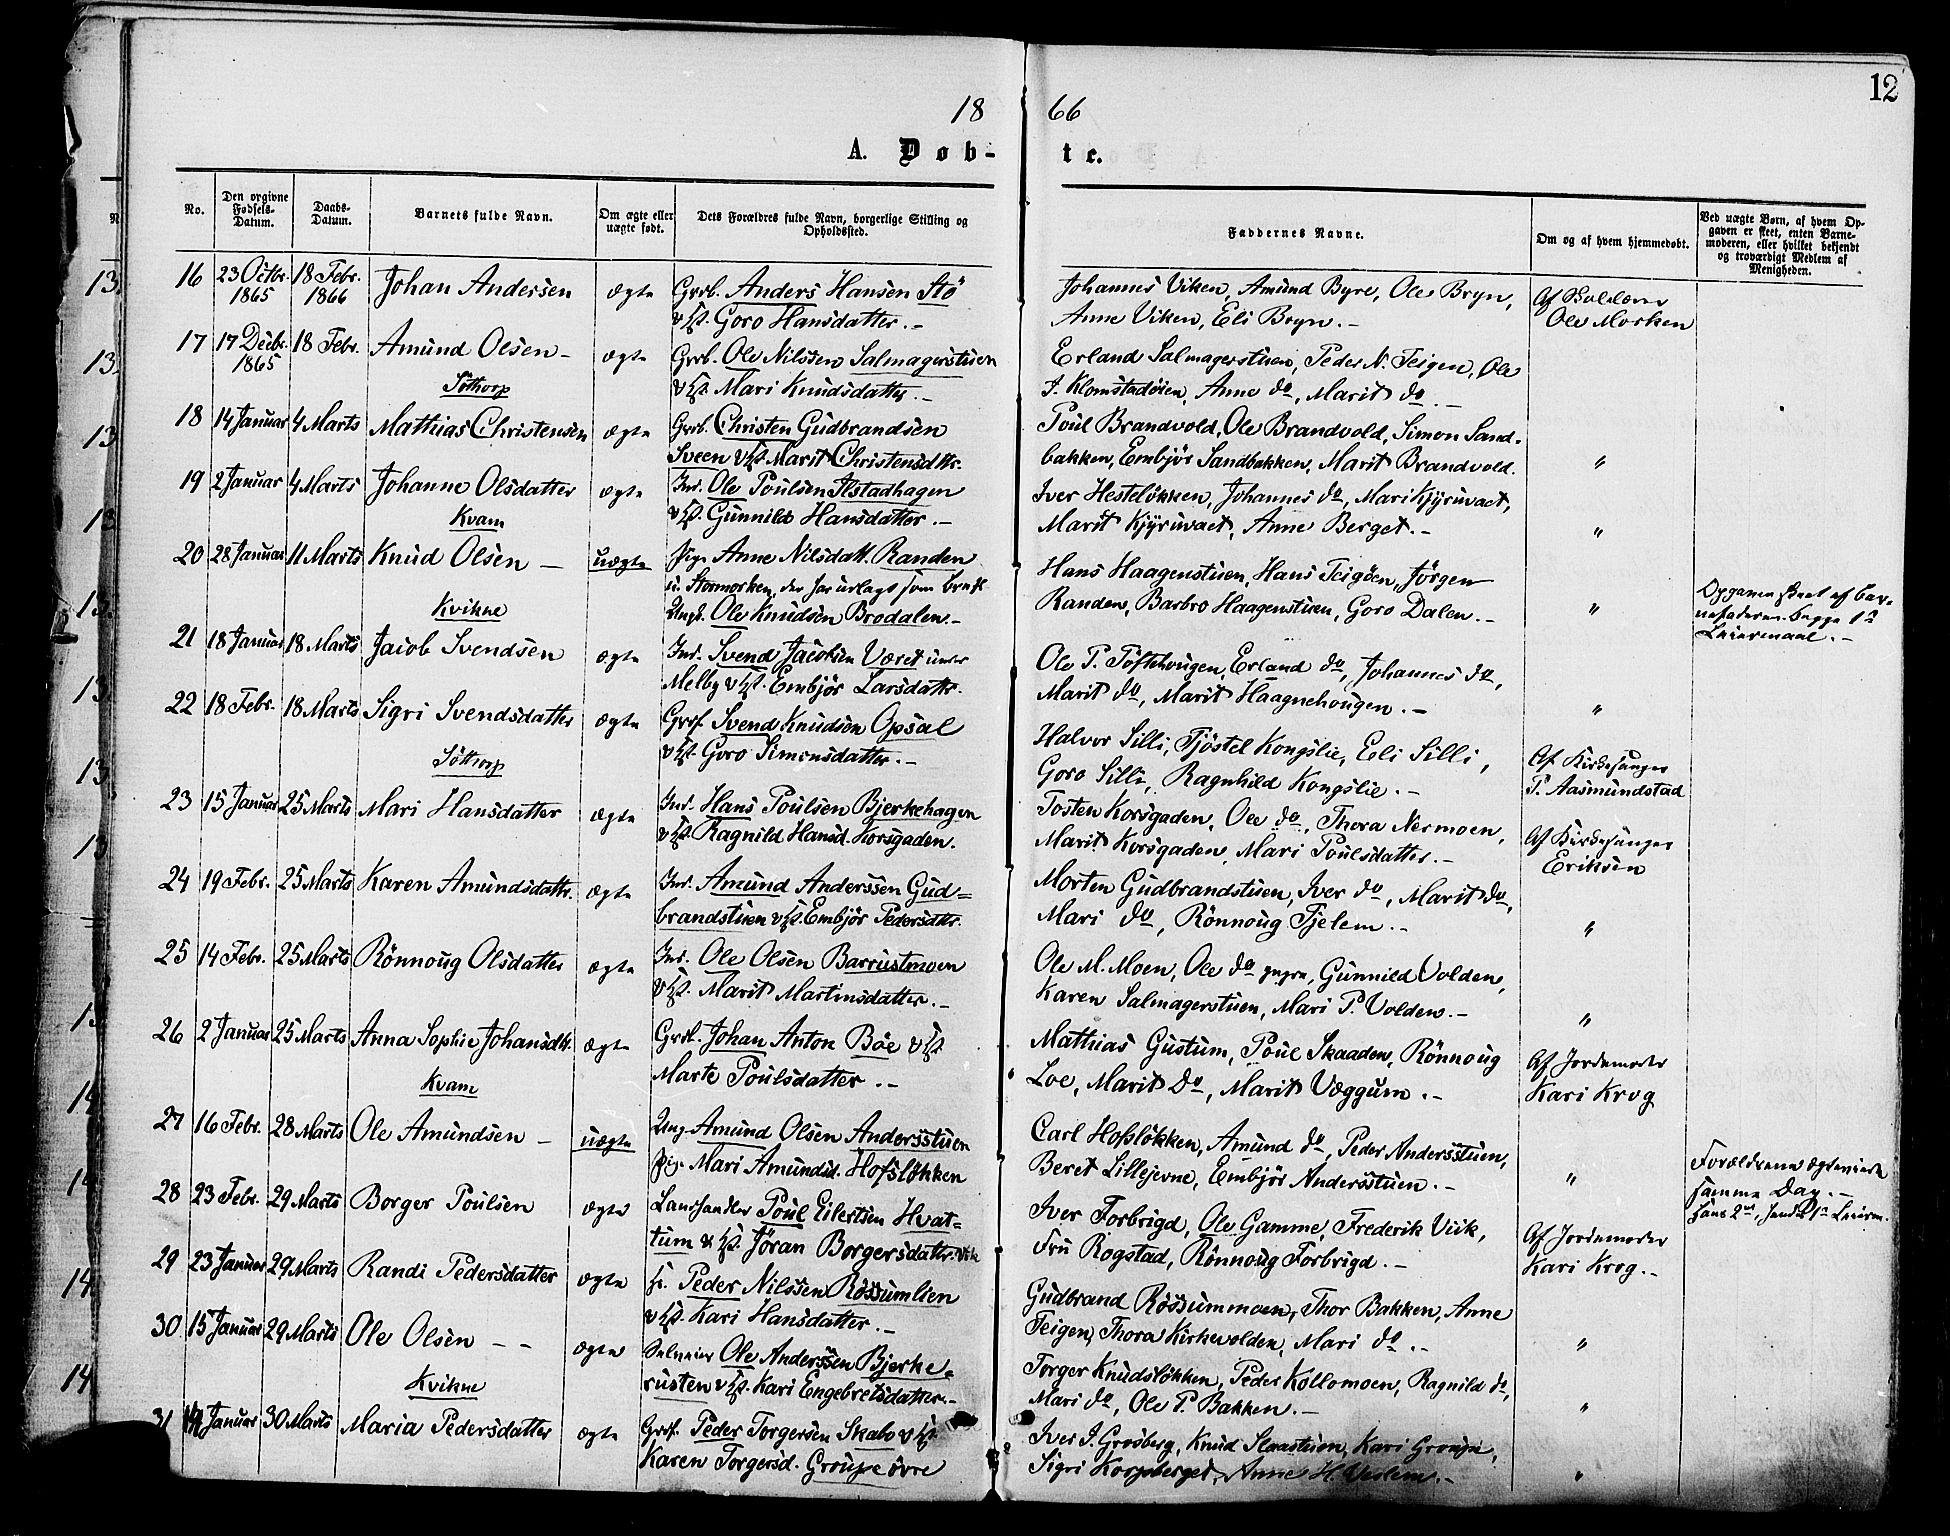 12
18 66
A. Døb- te.
No.
Den opgivne Fødsels-Datum.
Daabs-Datum.
Barnets fulde Navn.
Om ægte eller uægte født.
Dets Forældres fulde Navn, borgerlige Stilling og Opholdssted.
Faddernes Navne.
Om og af hvem hjemmedøbt.
Ved uægte Børn, af hvem Opgaven er skeet, enten Barnemoderen, eller hvilket bekjendt og troværdigt Medlem af Menigheden.
16 23 Octbr. 18 Febr. Johan Andersen ægte Grb. Anders Hansen Stö Johannes Viken, Amund Byre, Ole Bryn, Af
1865 1866 Goro Hansdatter.- Anne Viken, Eli Bryn.- Ole Morken
17 17 Decbr. 18 Febr. Amund Olsen- ægte Grb. Ole Nilssen Salmagerstuen Erland Salmagerstuen, Peder N. Teigen, Ole
1865 Söthorp Mari Knudsdatter.- I. Klomstadöien, Anne do, Marit do.-
18 14 Januar 4 Marts Mathias Christensen ægte Grb. Christen Gudbrandsen Poul Brandvold, Ole Brandvold, Simon Sand-
Sveen Marit Christensdttr. bakken, Embjör Sandbakken, Marit Brandvold. "
19 2 Januar 4 Marts Johanne Olsdatter ægte Ind. Ole Poulsen Ilstadhagen Iver Heslelökken, Johannes do, Mari Kjyruvaet,
Kvam Gunnild Hansdatter.- Marit Kjyruvaet, Anne Berget.- "
20 28 Januar 11 Marts Knud Olsen - uægte Pige Anne Nilsdatt. Randen Hans Haagenstuen, Hans Teigöen, Jörgen
u. Stormorken, der har udlagt som Barnef. Randen, Barbro Haagenstuen, Goro Dalen.- " Opgaven skeet af Bar-
Kvikne Ungk. Ole Knudsen Brodalen.- nefaderen. begge 1ste
21 18 Januar 18 Marts Jacob Svendsen ægte Ind. Svend Jacobsen Været under Ole P. Töftehougen, Erland do, Johannes do, Leiermaal.-
Melby Embjör Larsdattr. Marit do, Marit Haagnehougen.- "
22 18 Febr. 18 Marts Sigri Svendsdatter ægte Svend Knudsen Opsal Halvor Silli, Tjöstel Kongslie, Eli Silli,
Söthorp Goro Simensdatter.- Goro Silli, Ragnhild Kongslie.- Af Kirkesanger
P. Aasmundstad
23 15 Januar 25 Marts Mari Hansdatter ægte Ind. Hans Poulsen Bjerkehagen Tosten Korsgaden, Ole do, Thora Nermoen, Af Kirkesanger
Ragnild Hansd. Korsgaden. Marit Korsgaden, Mari Poulsdatter.- Eriksen
24 19 Febr. 25 Marts Karen Amundsdattr. ægte Ind. Amund Anderssen Gud= Morten Gudbrandstuen, Iver do, Marit do,
brandstuen Embjör Pedersdttr. Mari do, Rönnoug Tjelem.- "
25 14 Febr. 25 Marts Rönnoug Olsdatter ægte Ind. Ole Olsen Barrustmoen Ole M. Moen, Ole do yngre, Gunnild Volden,
Marit Martinsdatter.- Karen Salmagerstuen, Mari P. Volden.- "
26 2 Januar 25 Marts Anna Sophie Johansdtr. ægte Grb. Johan Anton Böe Mathias Gustum, Poul Skaaden, Rönnoug Af Jordemoder
Kvam Marte Poulsdatter.- Loe, Marit do, Marit Væggum.- Kari Krog
27 16 Febr. 28 Marts Ole Amundsen - uægte Ung. Amund Olsen Andersstuen Carl Hofslökken, Amund do, Peder Andersstuen,
Pig. Mari Amundsd. Hofslökken Beret Lillejevne, Embjör Andersstuen.- " Forældrene ægteviede
28 23 Febr. 29 Marts Borger Poulsen ægte Landhandler Poul Eilertsen Hvat- Iver Forbrigd, Ole Gamme, Frederik Viik, Af Jordemoder samme Dag.-
tum Jöran Borgersdattr. Viik Fru Rogstad, Rönnoug Forbrigd.- Kari Krog.-
29 23 Januar 29 Marts Randi Pedersdatter ægte Peder Nilssen Rössumlien Gudbrand Rössummoen, Thor Bakken, Anne
Kari Hansdatter.- Teigen, Thora Kirkevolden, Mari do.- "
30 15 Januar 29 Marts Ole Olsen - - ægte Selveier Ole Anderssen Bjerke- Torger Knudslökken, Peder Kollomoen, Ragnild do,
Kvikne rusten Kari Engebretsdatter.- Mari do, Ole P. Bakken.- "
31 Januar 30 Marts Maria Pedersdatter ægte Peder Torgersen Skabo Iver I. Grosberg, Knud Slaastuen, Kari
Karen Torgersd. Groupe övre Sigri Korpberget, Anne H. Veslem.- "